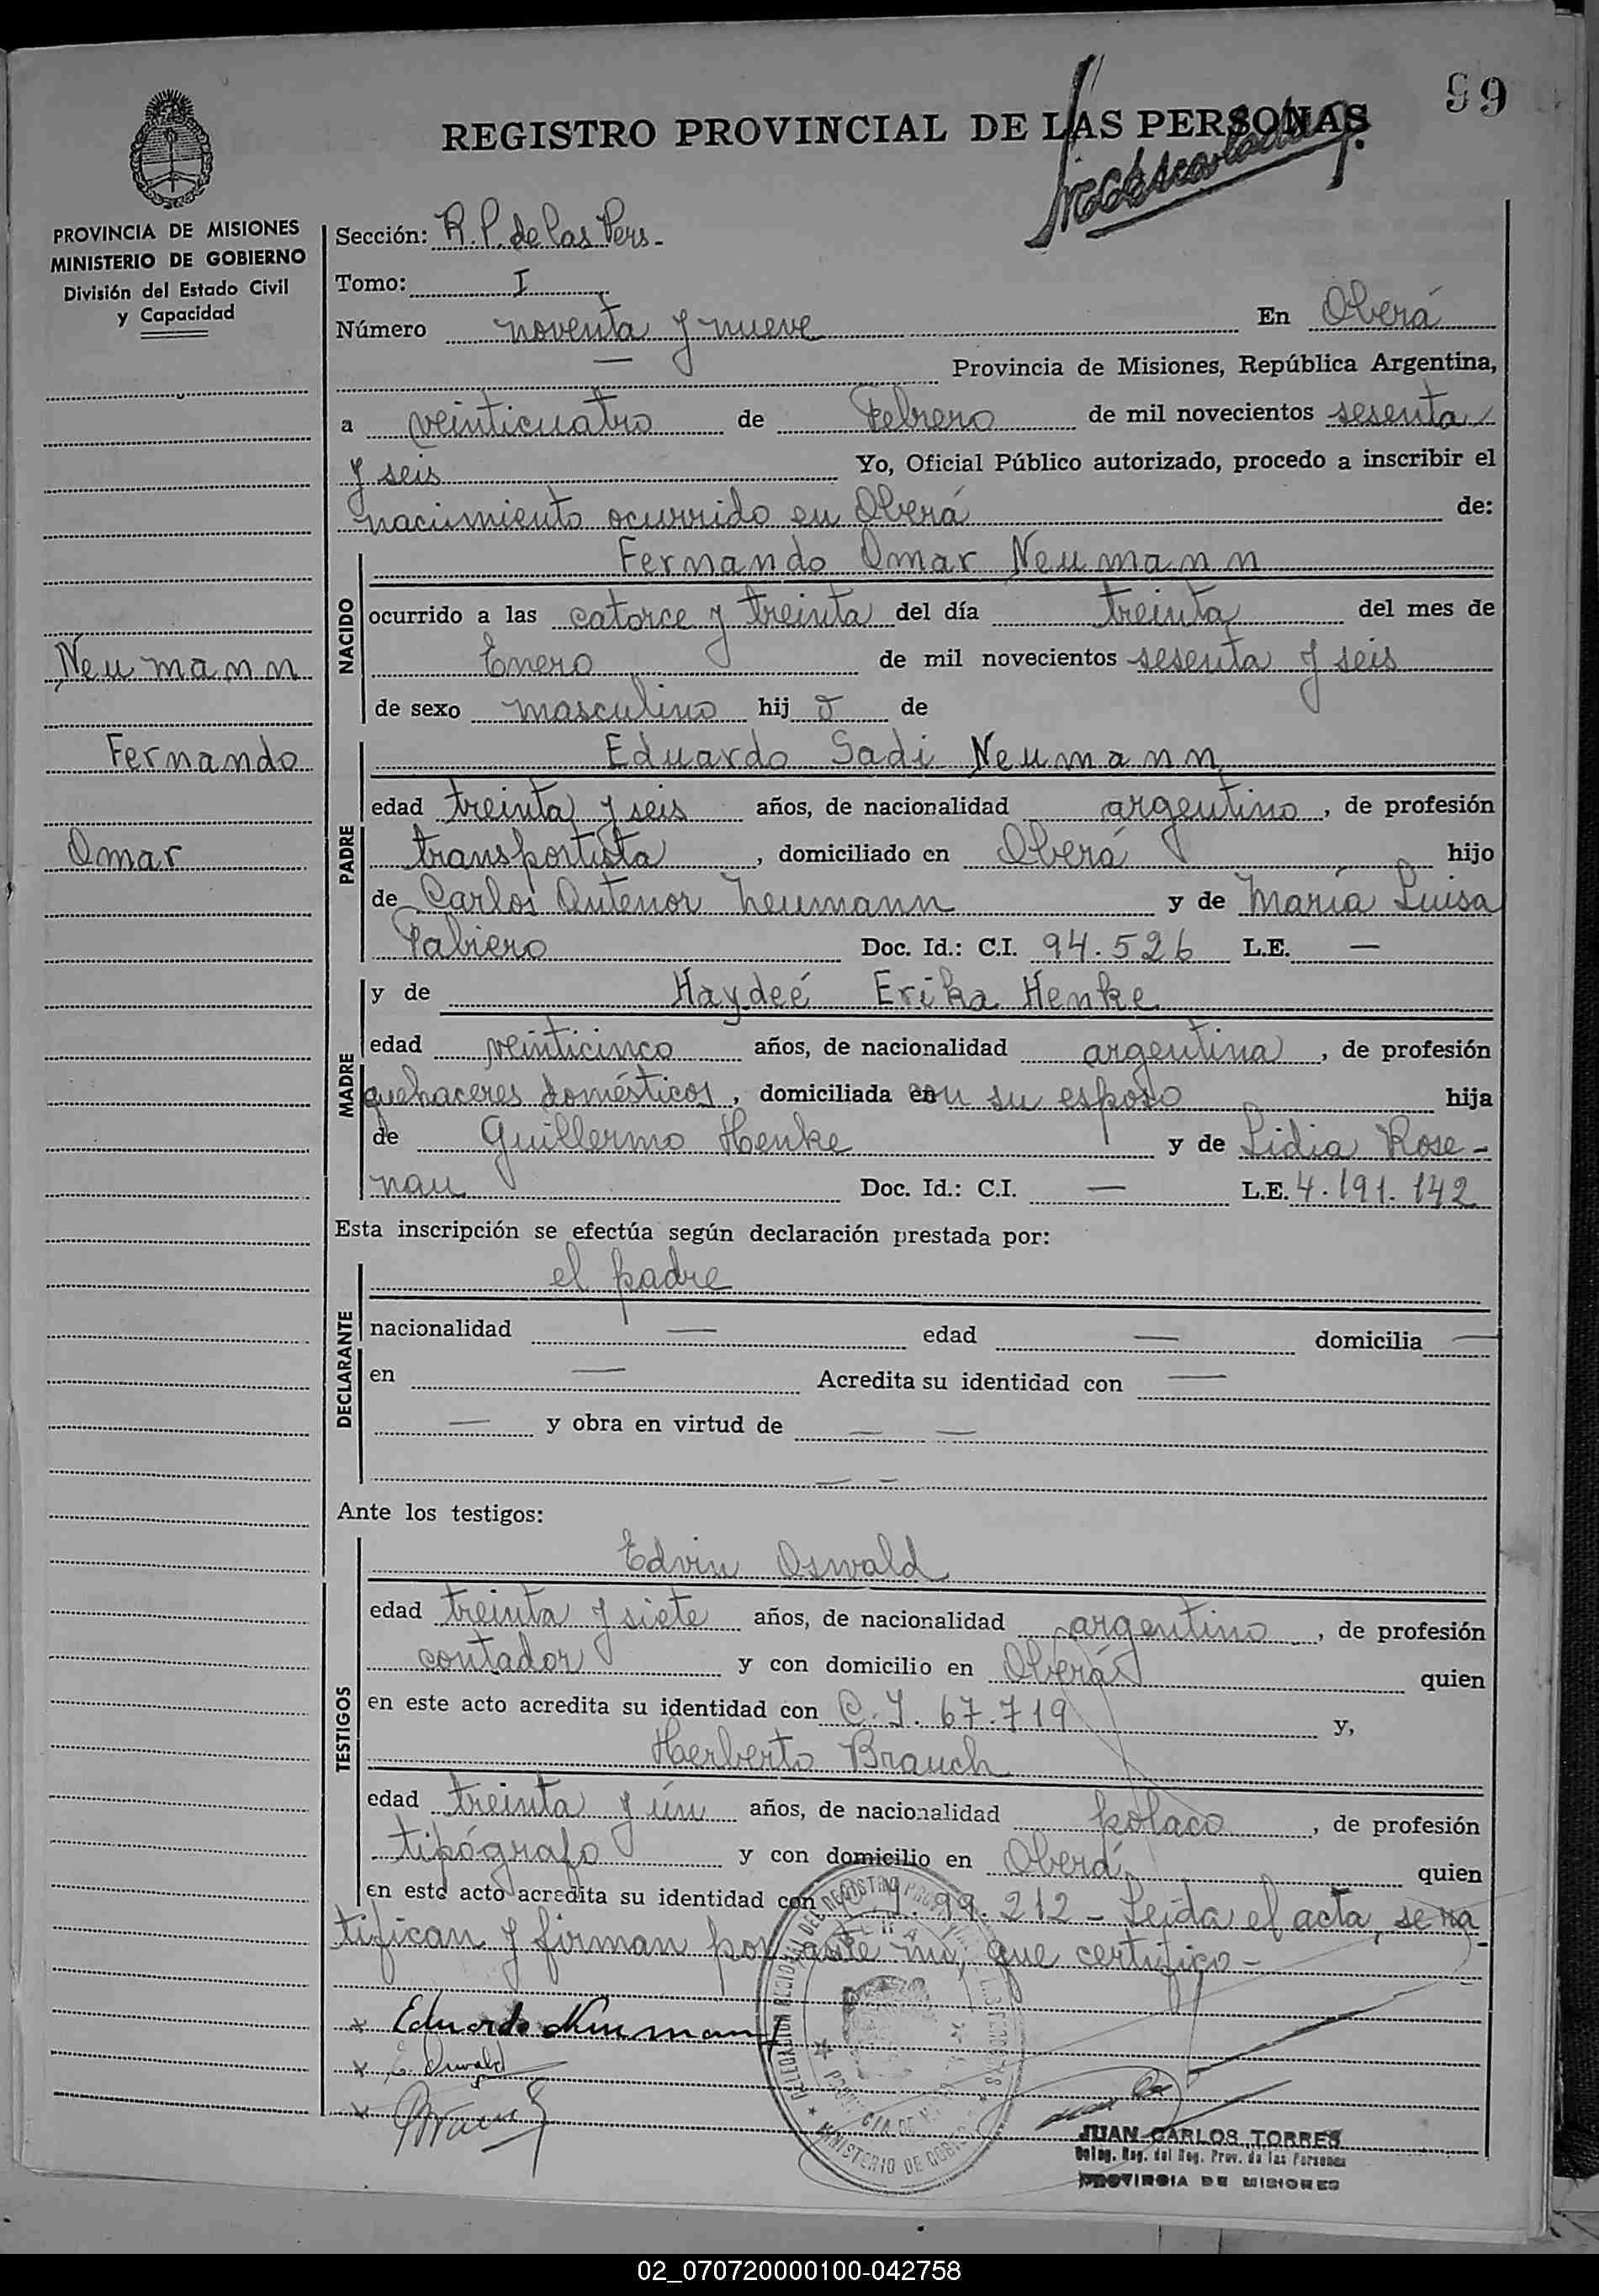 99
REGISTRO PROVINCIAL DE LAS PERSONAS
PROVINCIA DE MISIONES
MINISTERIO DE GOBIERNO
División del Estado Civil
y Capacidad
Neumann
Fernando
Omar
Sección: R. P. de las Pers.
Tomo: I
Número noventa y nueve En Oberá
— Provincia de Misiones, República Argentina,
a veinticuatro de Febrero de mil novecientos sesenta
y seis Yo, Oficial Público autorizado, procedo a inscribir el
nacimiento ocurrido en Oberá de:
NACIDO
Fernando Omar Neumann
ocurrido a las catorce y treinta del día treinta del mes de
Enero de mil novecientos sesenta y seis
de sexo masculino hijo de
PADRE
Eduardo Sadi Neumann
edad treinta y seis años, de nacionalidad argentino, de profesión
transportista, domiciliado en Oberá hijo
de Carlos Antenor Neumann y de María Luisa
Doc. Id.: C.I. 94.526 L.E. —
MADRE
y de Haydeé Erika Henke
edad veinticinco años, de nacionalidad argentina, de profesión
quehaceres domésticos, domiciliada con su esposo hija
de Guillermo Henke y de Lidia Rose-
nau Doc. Id.: C.I. — L.E. 4.191.142
Esta inscripción se efectúa según declaración prestada por:
DECLARANTE
el padre
nacionalidad — edad — domicilia —
en — Acredita su identidad con —
— y obra en virtud de — —
— —
Ante los testigos:
TESTIGOS
Edvin Oswald
edad treinta y siete años, de nacionalidad argentino, de profesión
contador y con domicilio en Oberá quien
en este acto acredita su identidad con C.I. 67.719 y,
Herberto Brauch
edad treinta y ún años, de nacionalidad polaco, de profesión
tipógrafo y con domicilio en Oberá quien
en este acto acredita su identidad con C.I. 99.212 - Leída el acta, se ra-
tifican y firman por ante mí, que certifico -
x Eduardo Neumann
x E. Oswald
x
JUAN CARLOS TORRES
Deleg. Reg. del Reg. Prov. de las Personas
PROVINCIA DE MISIONES
02_070720000100-042758